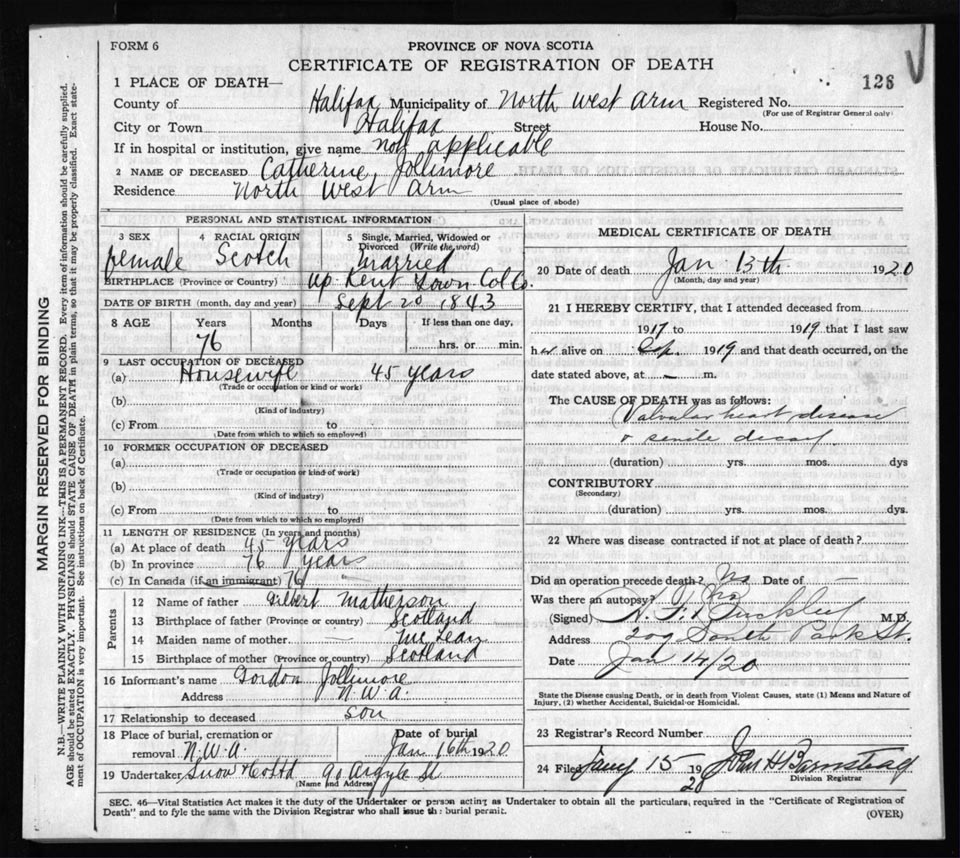 FORM 6
PROVINCE OF NOVA SCOTIA
CERTIFICATE OF REGISTRATION OF DEATH
128
1 PLACE OF DEATH—
County of Halifax Municipality of North West Arm Registered No.
(For use of Registrar General only)
City or Town Halifax Street House No.
If in hospital or institution, give name not applicable
2 NAME OF DECEASED Catherine Jollimore
Residence North West Arm
(Usual place of abode)
PERSONAL AND STATISTICAL INFORMATION
3 SEX female
4 RACIAL ORIGIN Scotch
5 Single, Married, Widowed or Divorced (Write the word) Married
BIRTHPLACE (Province or Country) Up. Kent Town Col Co.
DATE OF BIRTH (month, day and year) Sept 20 1843
8 AGE Years Months Days If less than one day,
76 hrs. or min.
9 LAST OCCUPATION OF DECEASED
(a) Housewife 45 years
(Trade or occupation or kind or work)
(b)
(Kind of industry)
(c) From to
(Date from which to which so employed)
10 FORMER OCCUPATION OF DECEASED
(a)
(Trade or occupation or kind of work)
(b)
(Kind of industry)
(c) From to
(Date from which to which so employed)
11 LENGTH OF RESIDENCE (In years and months)
(a) At place of death 45 years
(b) In province 76 years
(c) In Canada (if an immigrant) 76
Parents
12 Name of father Matherson
13 Birthplace of father (Province or country) Scotland
14 Maiden name of mother — McLean
15 Birthplace of mother (Province or country) Scotland
16 Informant's name Gordon Jollimore
Address N.W.A.
17 Relationship to deceased son
18 Place of burial, cremation or removal N.W.A. Date of burial Jan 16th 1920
19 Undertaker Snow & Co Ltd 90 Argyle St
(Name and Address)
MEDICAL CERTIFICATE OF DEATH
20 Date of death Jan 13th 1920
(Month, day and year)
21 I HEREBY CERTIFY, that I attended deceased from
1917 to 1919 that I last saw
her alive on Sep. 1919 and that death occurred, on the
date stated above, at — m.
The CAUSE OF DEATH was as follows:
Valvular heart disease
& senile decay
(duration) yrs. mos. dys
CONTRIBUTORY
(Secondary)
(duration) yrs. mos. dys.
22 Where was disease contracted if not at place of death?
Did an operation precede death? No Date of —
Was there an autopsy? No
(Signed) M.D.
Address 209 South Park St.
Date Jan 14/20
State the Disease causing Death, or in death from Violent Causes, state (1) Means and Nature of
Injury, (2) whether Accidental, Suicidal or Homicidal.
23 Registrar's Record Number
24 Filed Jany 15 1920 John H Barnstead
Division Registrar
SEC. 46—Vital Statistics Act makes it the duty of the Undertaker or person acting as Undertaker to obtain all the particulars, required in the "Certificate of Registration of
Death" and to fyle the same with the Division Registrar who shall issue the burial permit.
(OVER)
MARGIN RESERVED FOR BINDING
N.B.—WRITE PLAINLY WITH UNFADING INK—THIS IS A PERMANENT RECORD. Every item of information should be carefully supplied.
AGE should be stated EXACTLY. PHYSICIANS should STATE CAUSE OF DEATH in plain terms, so that it may be properly classified. Exact state-
ment of OCCUPATION is very important. See instructions on back of Certificate.